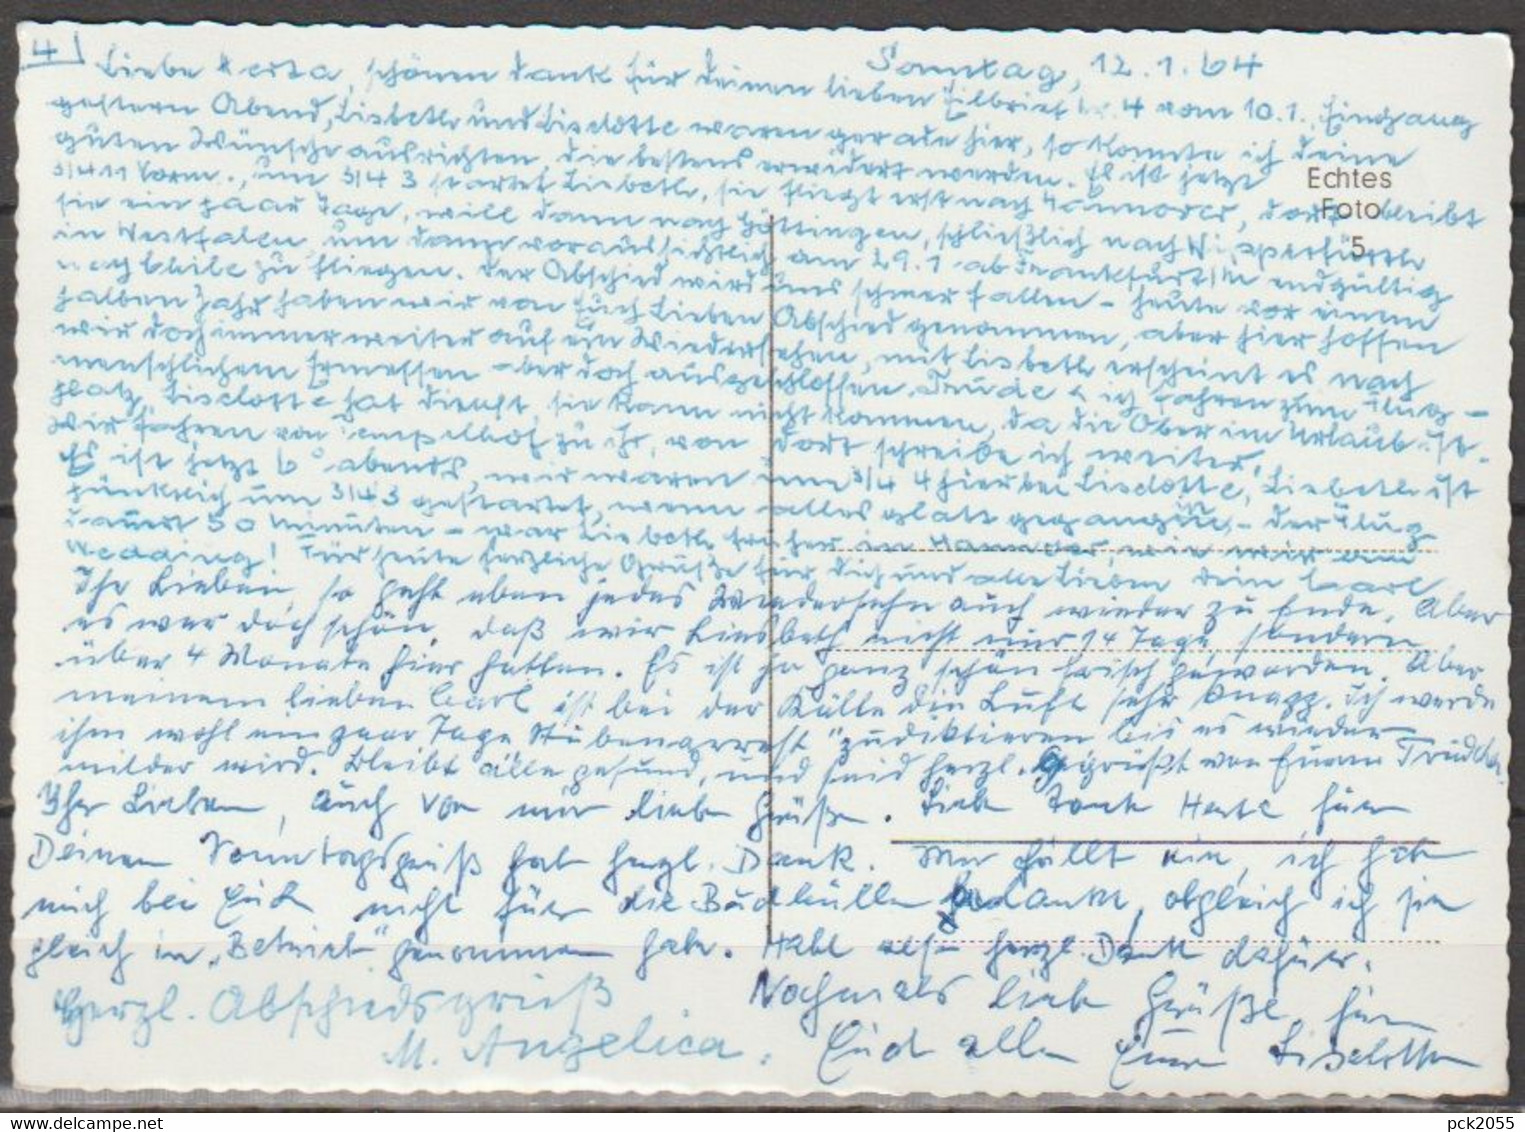 4
Sonntag, 12.1.64
Liebe Herta, schönen Dank für Deinen lieben Eilbrief Nr. 4 vom 10.1., Eingang
gestern Abend, Lisbeth und Liselotte waren gerade hier, so konnte ich Deine
guten Wünsche ausrichten, die bestens erwidert werden. Es ist jetzt
3/4 11 Vorm., um 3/4 3 startet Lisbeth, sie fliegt erst nach Hannover, dort bleibt
sie ein paar Tage, will dann nach Göttingen, schließlich nach
in Westfalen, um dann voraussichtlich am 29.1. ab Frankfurt/M endgültig
nach zu fliegen. Der Abschied wird uns schwer fallen - heute vor einem
halben Jahr haben wir von Euch Lieben Abschied genommen, aber hier hoffen
wir doch immer weiter auf ein Wiedersehen, mit Lisbeth erscheint es nach
menschlichem Ermessen aber doch ausgeschlossen. Trude & ich fahren zum Flug-
platz, Liselotte hat Dienst, sie kann nicht kommen, da die Ober im Urlaub ist.
Wir fahren von Tempelhof zu ihr, von dort schreibe ich weiter.
Es ist jetzt 6° abends, wir waren um 3/4 4 hier bei Liselotte, Lisbeth ist
pünktlich um 3/4 3 gestartet, wenn alles glatt gegangen, - der Flug
dauert 50 Minuten - war Lisbeth früher in Hannover, wie wir am
Wedding! Für heute herzliche Grüße für Dich und alle Lieben Dein Carl
Ihr Lieben, so geht eben jedes Wiedersehn auch wieder zu Ende. Aber
es war doch schön, daß wir Liesbeth nicht nur 14 Tage, sondern
über 4 Monate hier hatten. Es ist ja ganz schön frisch geworden. Aber
meinem lieben Carl ist bei der Kälte die Luft sehr knapp. Ich werde
ihm wohl ein paar Tage "Stubenarrest" zudiktieren bis es wieder
milder wird. Bleibt alle gesund, und seid herzl. gegrüßt von Eurem Trudchen.
Ihr Lieben, auch von mir liebe Grüße. Liebe Tante Herta für
Deinen Sonntagsgruß hab herzl. Dank. Mir fällt ein, ich habe
mich bei Euch nicht für die Buchhüllen bedankt, obgleich ich sie
gleich in "Betrieb" genommen habe. Habt also herzl. Dank dafür.
Nochmals liebe Grüße für
Euch alle Eure Liselotte
Herzl. Abschiedsgruß
M. Angelica.
Echtes
Foto
5
delcampe.net
pck2055